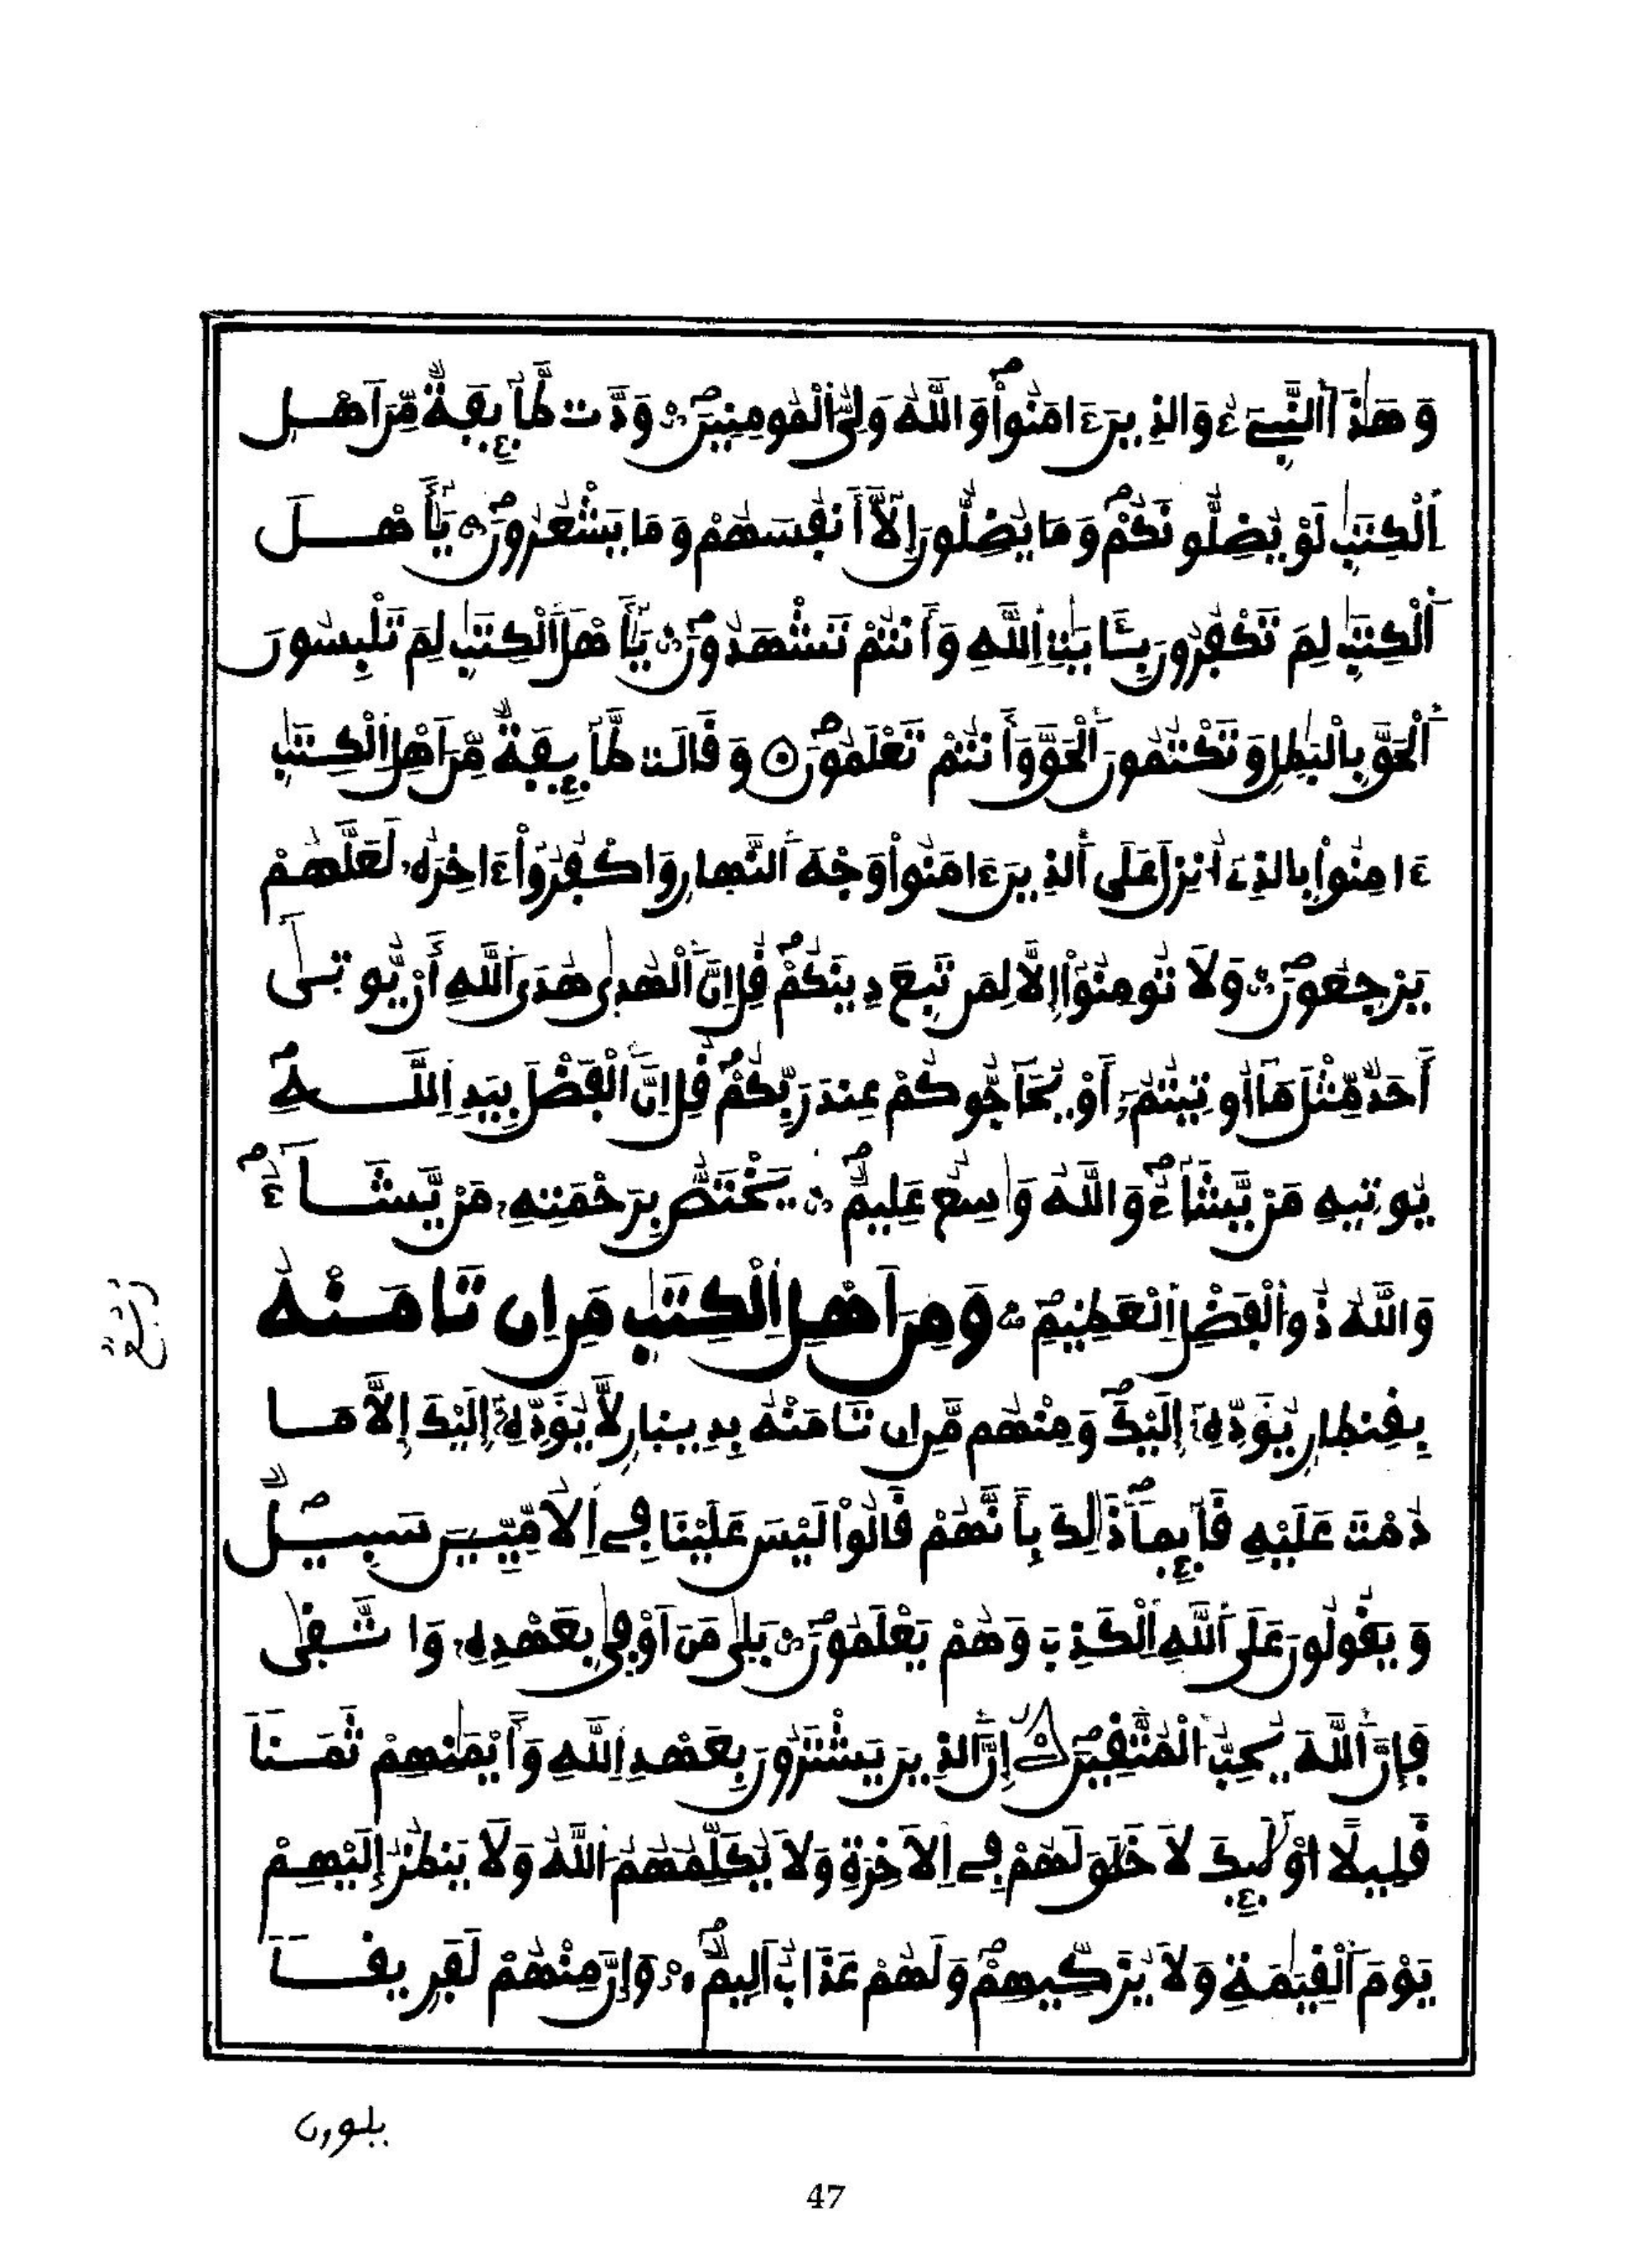 وَهَٰذَا اَ۬لنَّبِيٓءُ وَالذِينَ ءَامَنُواْ وَاللَّهُ وَلِيُّ اُ۬لْمُومِنِينَ وَدَّت طَّآئِفَةٌ مِّنَ اَهْلِ
اِ۬لْكِتَٰبِ لَوْ يُضِلُّونَكُمْ وَمَا يُضِلُّونَ إِلَّآ أَنفُسَهُمْ وَمَا يَشْعُرُونَ يَٰٓأَهْلَ
اَ۬لْكِتَٰبِ لِمَ تَكْفُرُونَ بِـَٔايَٰتِ اِ۬للَّهِ وَأَنتُمْ تَشْهَدُونَ يَٰٓأَهْلَ اَ۬لْكِتَٰبِ لِمَ تَلْبِسُونَ
اَ۬لْحَقَّ بِالْبَٰطِلِ وَتَكْتُمُونَ اَ۬لْحَقَّ وَأَنتُمْ تَعْلَمُونَ ۝ وَقَالَت طَّآئِفَةٌ مِّنَ اَهْلِ اِ۬لْكِتَٰبِ
ءَامِنُواْ بِالذِےٓ أُنزِلَ عَلَى اَ۬لذِينَ ءَامَنُواْ وَجْهَ اَ۬لنَّهَارِ وَاكْفُرُوٓاْ ءَاخِرَهُۥ لَعَلَّهُمْ
يَرْجِعُونَ وَلَا تُومِنُوٓاْ إِلَّا لِمَن تَبِعَ دِينَكُمْ قُلِ اِنَّ اَ۬لْهُد۪ىٰ هُدَى اَ۬للَّهِ أَنْ يُّوت۪ىٰٓ
أَحَدٌ مِّثْلَ مَآ أُوتِيتُمُۥٓ أَوْ يُحَآجُّوكُمْ عِندَ رَبِّكُمْ قُلِ اِنَّ اَ۬لْفَضْلَ بِيَدِ اِ۬للَّهِ
يُوتِيهِ مَنْ يَّشَآءُ وَاللَّهُ وَٰسِعٌ عَلِيمٌ يَخْتَصُّ بِرَحْمَتِهِۦ مَنْ يَّشَآءُ
وَاللَّهُ ذُو اُ۬لْفَضْلِ اِ۬لْعَظِيمِ وَمِنَ اَهْلِ اِ۬لْكِتَٰبِ مَنِ اِن تَامَنْهُ
رُبُعٌ
بِقِنط۪ارٍ يُؤَدِّهِۦٓ إِلَيْكَ وَمِنْهُم مَّنِ اِن تَامَنْهُ بِدِين۪ارٍ لَّا يُؤَدِّهِۦٓ إِلَيْكَ إِلَّا مَا
دُمْتَ عَلَيْهِ قَآئِماً ذَٰلِكَ بِأَنَّهُمْ قَالُواْ لَيْسَ عَلَيْنَا فِے اِ۬لُامِّيِّـۧنَ سَبِيلٌ
وَيَقُولُونَ عَلَى اَ۬للَّهِ اِ۬لْكَذِبَ وَهُمْ يَعْلَمُونَ بَل۪ىٰ مَنَ اَوْف۪ىٰ بِعَهْدِهِۦ وَاتَّق۪ىٰ
فَإِنَّ اَ۬للَّهَ يُحِبُّ اُ۬لْمُتَّقِينَ إِنَّ اَ۬لذِينَ يَشْتَرُونَ بِعَهْدِ اِ۬للَّهِ وَأَيْمَٰنِهِمْ ثَمَناً
قَلِيلاً ا۟وْلَٰٓئِكَ لَا خَلَٰقَ لَهُمْ فِے اِ۬لَاخِرَةِ وَلَا يُكَلِّمُهُمُ اُ۬للَّهُ وَلَا يَنظُرُ إِلَيْهِمْ
يَوْمَ اَ۬لْقِيَٰمَةِ وَلَا يُزَكِّيهِمْ وَلَهُمْ عَذَابٌ اَلِيمٌ وَإِنَّ مِنْهُمْ لَفَرِيقاً
يلورن
47